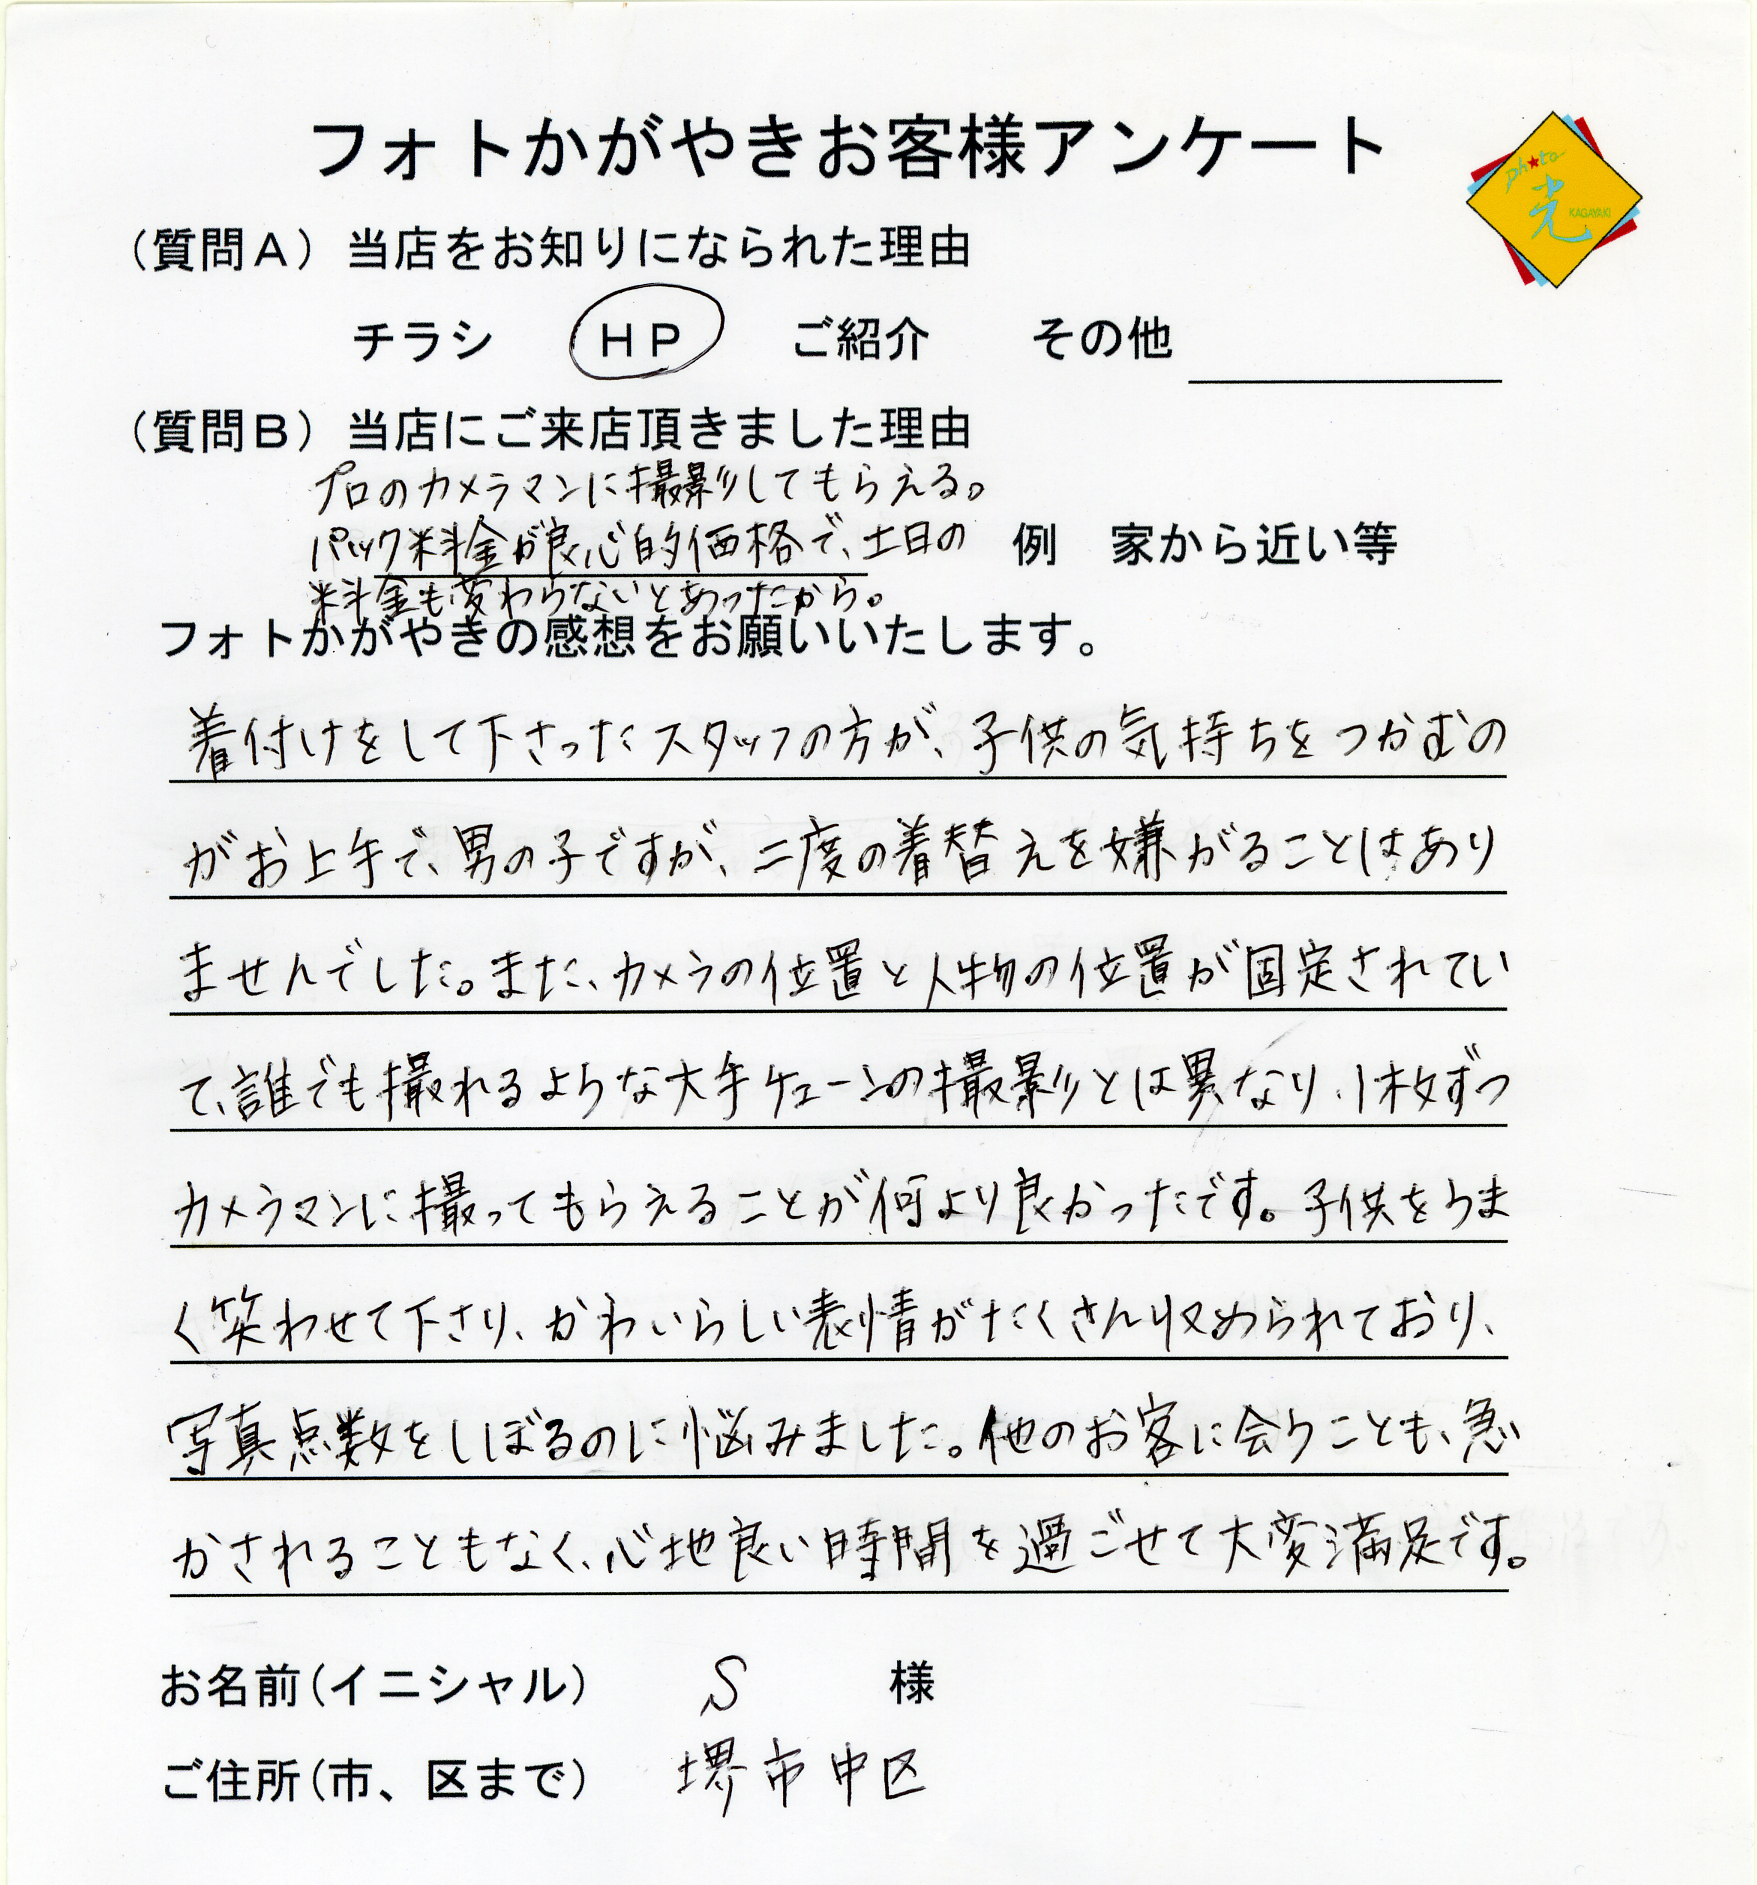 フォトかがやきお客様アンケート
photo
光
KAGAYAKI
（質問A）当店をお知りになられた理由
チラシ　HP　ご紹介　その他
（質問B）当店にご来店頂きました理由
プロのカメラマンに撮影してもらえる。
パック料金が良心的価格で、土日の　例　家から近い等
料金も変わらないとあったから。
フォトかがやきの感想をお願いいたします。
着付けをして下さったスタッフの方が、子供の気持ちをつかむの
がお上手で、男の子ですが、二度の着替えを嫌がることはあり
ませんでした。また、カメラの位置と人物の位置が固定されてい
て、誰でも撮れるような大手チェーンの撮影とは異なり、1枚ずつ
カメラマンに撮ってもらえることが何より良かったです。子供をうま
く笑わせて下さり、かわいらしい表情がたくさん収められており、
写真点数をしぼるのに悩みました。他のお客に会うことも、急
かされることもなく、心地良い時間を過ごせて大変満足です。
お名前（イニシャル）　S　様
ご住所（市、区まで）　堺市中区